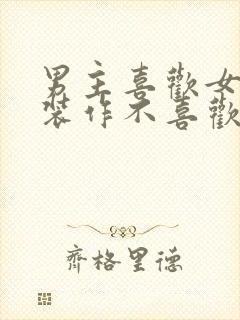 男主喜歡女
裝作不喜歡
齊格里德